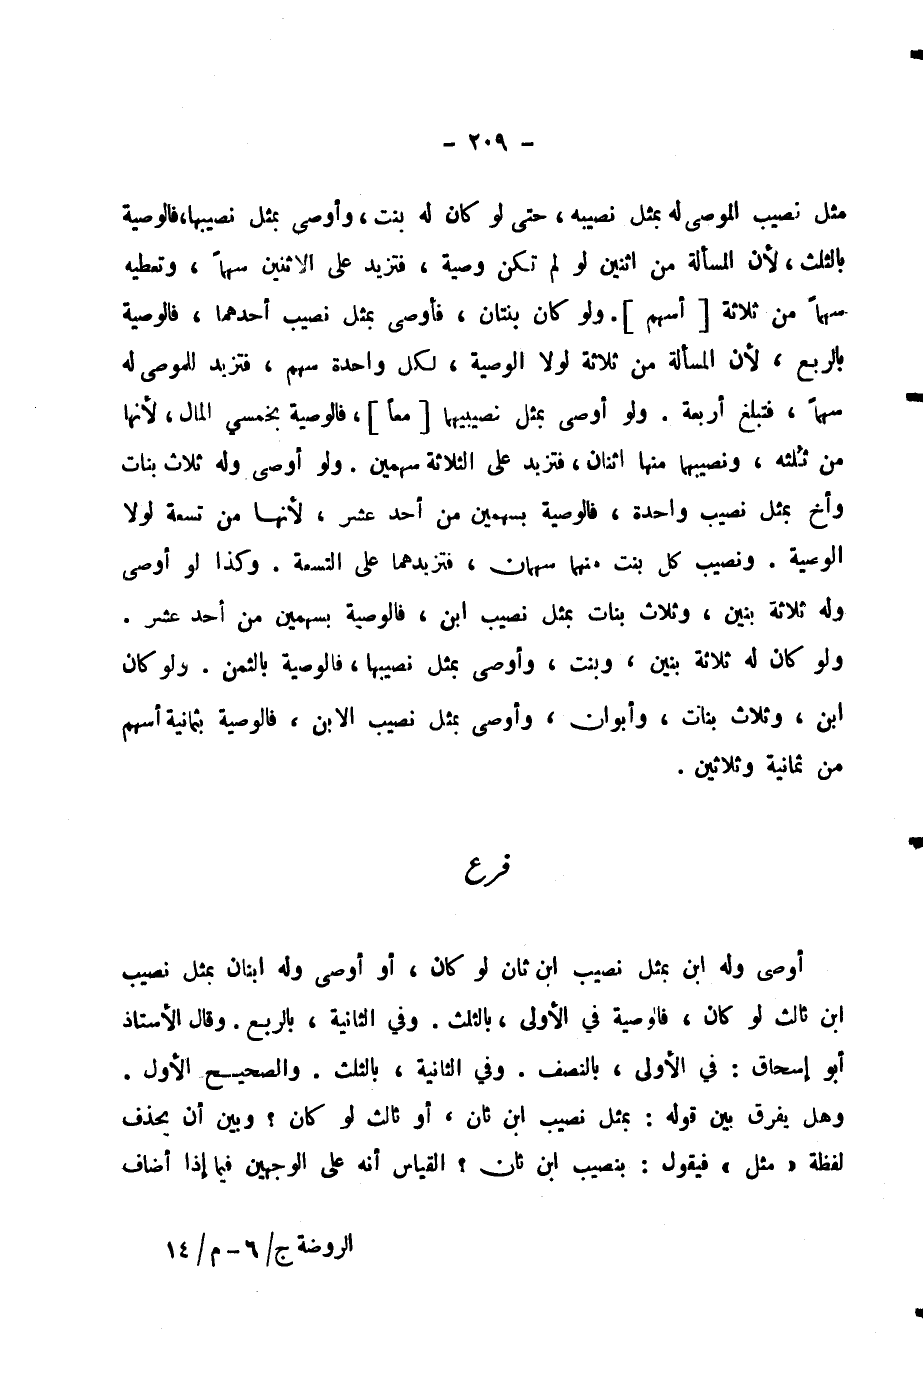 - ٢٠٩ -
مثل نصيب الموصى له بمثل نصيبه ، حتى لو كان له بنت ، وأوصى بمثل نصيبها،فالوصية
بالثلث ، لأن المسألة من اثنين لو لم تكن وصية ، فتزيد على الاثنين سهماً ، وتعطيه
سهماً من ثلاثة [ أسهم ] . ولو كان بنتان ، فأوصى بمثل نصيب أحدهما ، فالوصية
بالربع ، لأن المسألة من ثلاثة لولا الوصية ، لكل واحدة سهم ، فتزيد للموصى له
سهماً ، فتبلغ أربعة . ولو أوصى بمثل نصيبيهما [ معاً ] ، فالوصية بخمسي المال ، لأنها
من ثلثه ، ونصيبها منها اثنان ، فتزيد على الثلاثة سهمين . ولو أوصى وله ثلاث بنات
وأخ بمثل نصيب واحدة ، فالوصية بسهمين من أحد عشر ، لأنهـا من تسعة لولا
الوصية . ونصيب كل بنت منها سهمان ، فتزيدهما على التسعة . وكذا لو أوصى
وله ثلاثة بنين ، وثلاث بنات بمثل نصيب ابن ، فالوصية بسهمين من أحد عشر .
ولو كان له ثلاثة بنين ، وبنت ، وأوصى بمثل نصيبها ، فالوصية بالثمن . ولو كان
ابن ، وثلاث بنات ، وأبوان ، وأوصى بمثل نصيب الابن ، فالوصية بثمانية أسهم
من ثمانية وثلاثين .
فرع
أوصى وله ابن بمثل نصيب ابن ثان لو كان ، أو أوصى وله ابنان بمثل نصيب
ابن ثالث لو كان ، فالوصية في الأولى ، بالثلث . وفي الثانية ، بالربع . وقال الأستاذ
أبو إسحاق : في الأولى ، بالنصف . وفي الثانية ، بالثلث . والصحيـح الأول .
وهل يفرق بين قوله : بمثل نصيب ابن ثان ، أو ثالث لو كان ؟ وبين أن يحذف
لفظة « مثل » فيقول : بنصيب ابن ثان ؟ القياس أنه على الوجهين فيما إذا أضاف
الروضة ج/٦ - م/١٤